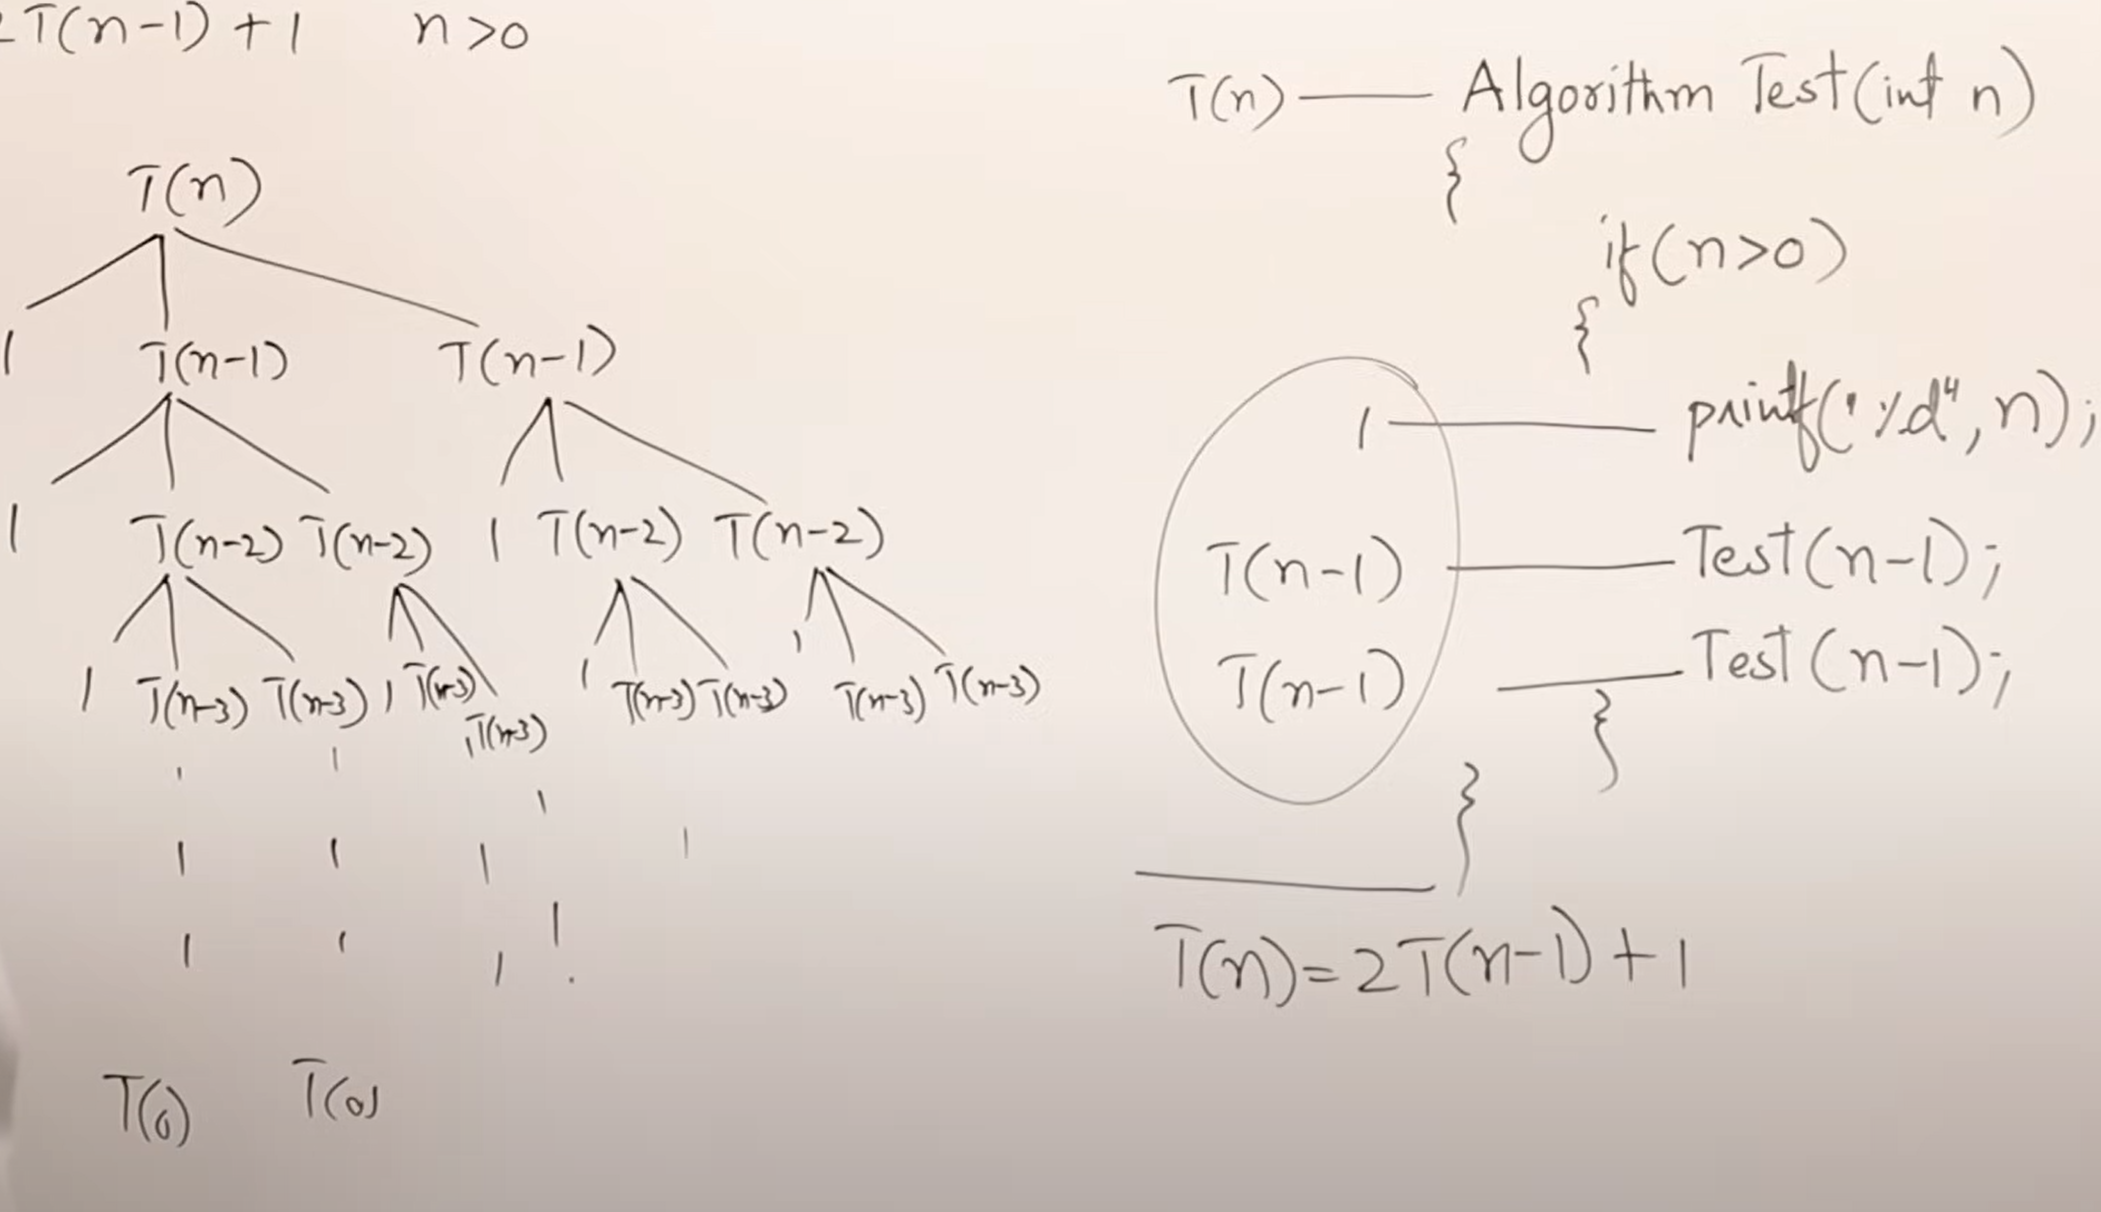 2T(n-1) + 1 n>0
T(n)
1 T(n-1) T(n-1)
1 T(n-2) T(n-2) 1 T(n-2) T(n-2)
1 T(n-3) T(n-3) 1 T(n-3) T(n-3) 1 T(n-3) T(n-3) 1 T(n-3) T(n-3)
T(0) T(0)
T(n) — Algorithm Test(int n)
{
if(n>0)
{
1 — printf("%d", n);
T(n-1) — Test(n-1);
T(n-1) — Test(n-1);
}
}
T(n)=2T(n-1)+1